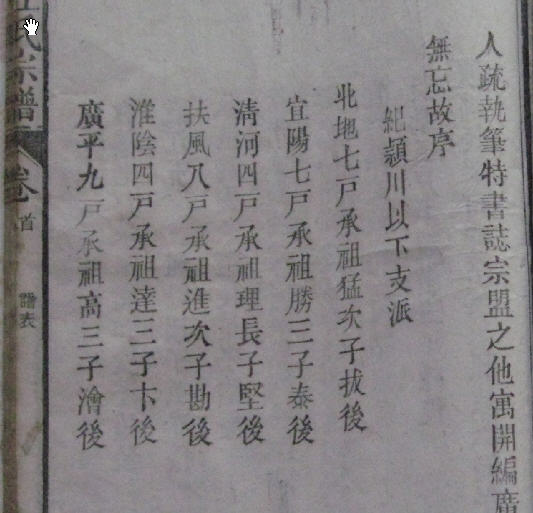 人疏執筆特書誌宗盟之他寓開編廣
無忘故序
紀潁川以下支派
北地七戸承祖猛次子拔後
宜陽七戸承祖勝三子泰後
清河四戸承祖理長子堅後
扶風八戸承祖進次子勘後
淮陰四戸承祖達三子卞後
廣平九戸承祖高三子澮後
氏宗譜
卷首
譜表